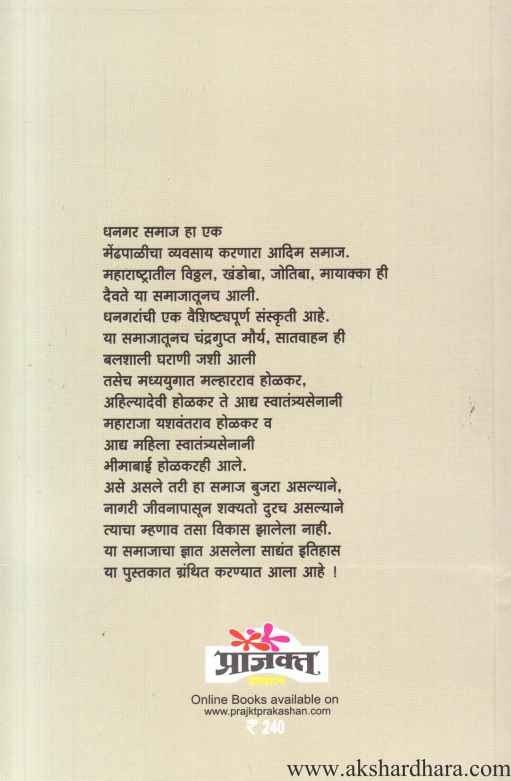 धनगर समाज हा एक
मेंढपाळीचा व्यवसाय करणारा आदिम समाज.
महाराष्ट्रातील विठ्ठल, खंडोबा, जोतिबा, मायाक्का ही
दैवते या समाजातूनच आली.
धनगरांची एक वैशिष्ट्यपूर्ण संस्कृती आहे.
या समाजातूनच चंद्रगुप्त मौर्य, सातवाहन ही
बलशाली घराणी जशी आली
तसेच मध्ययुगात मल्हारराव होळकर,
अहिल्यादेवी होळकर ते आद्य स्वातंत्र्यसेनानी
महाराजा यशवंतराव होळकर व
आद्य महिला स्वातंत्र्यसेनानी
भीमाबाई होळकरही आले.
असे असले तरी हा समाज बुजरा असल्याने,
नागरी जीवनापासून शक्यतो दुरच असल्याने
त्याचा म्हणाव तसा विकास झालेला नाही.
या समाजाचा ज्ञात असलेला साद्यंत इतिहास
या पुस्तकात ग्रंथित करण्यात आला आहे !
प्राजक्त
प्रकाशन
Online Books available on
www.prajktprakashan.com
₹ 240
www.akshardhara.com